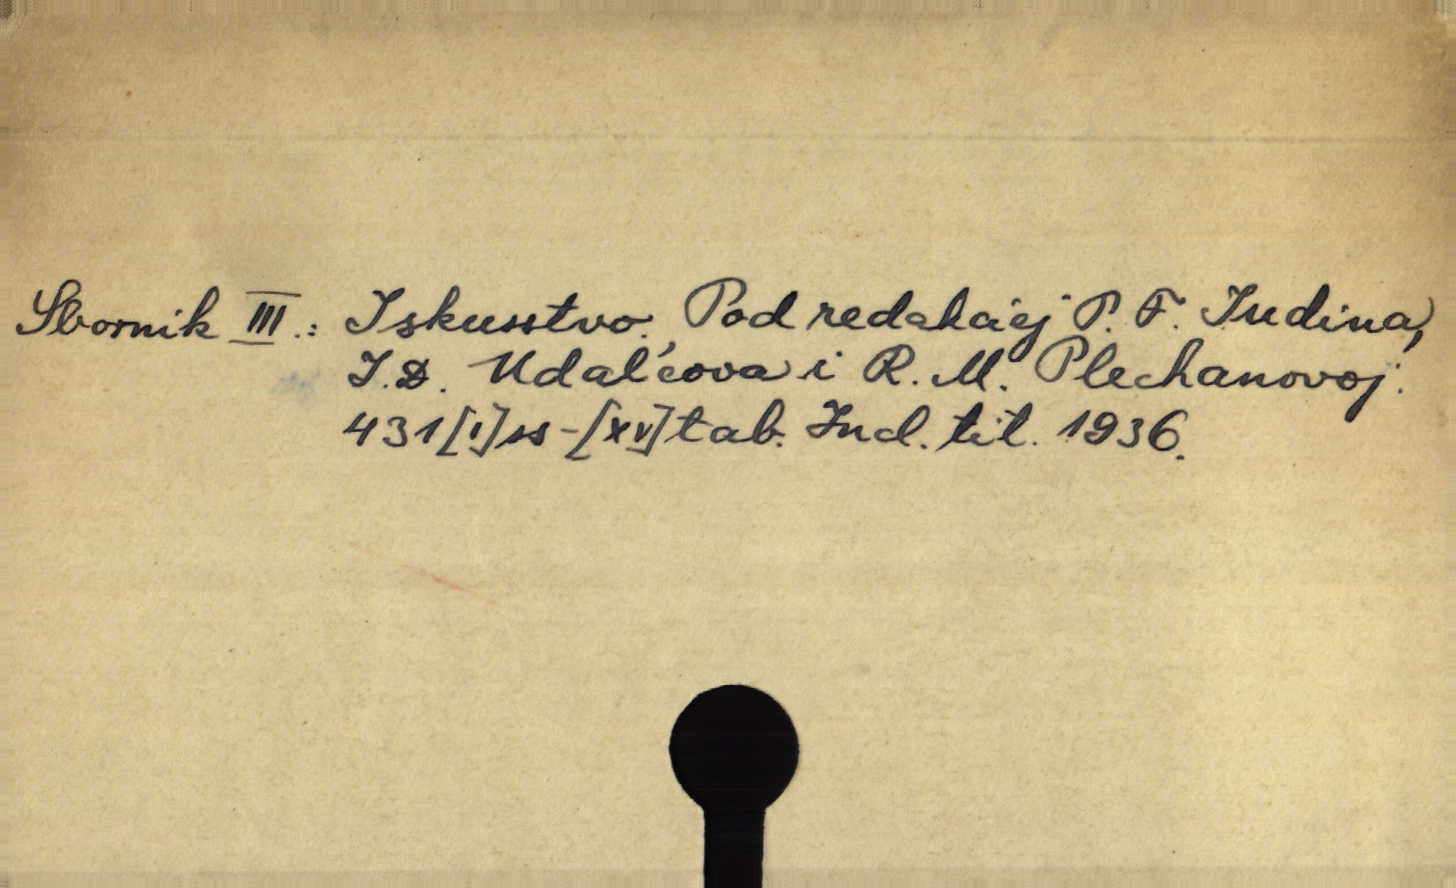 Sbornik III.: Iskusstvo. Pod redakciej P. F. Iudina,
I. D. Udal'cova i R. M. Plechanovoj.
431[1]ss-[XV]tab. Ind. tit. 1936.